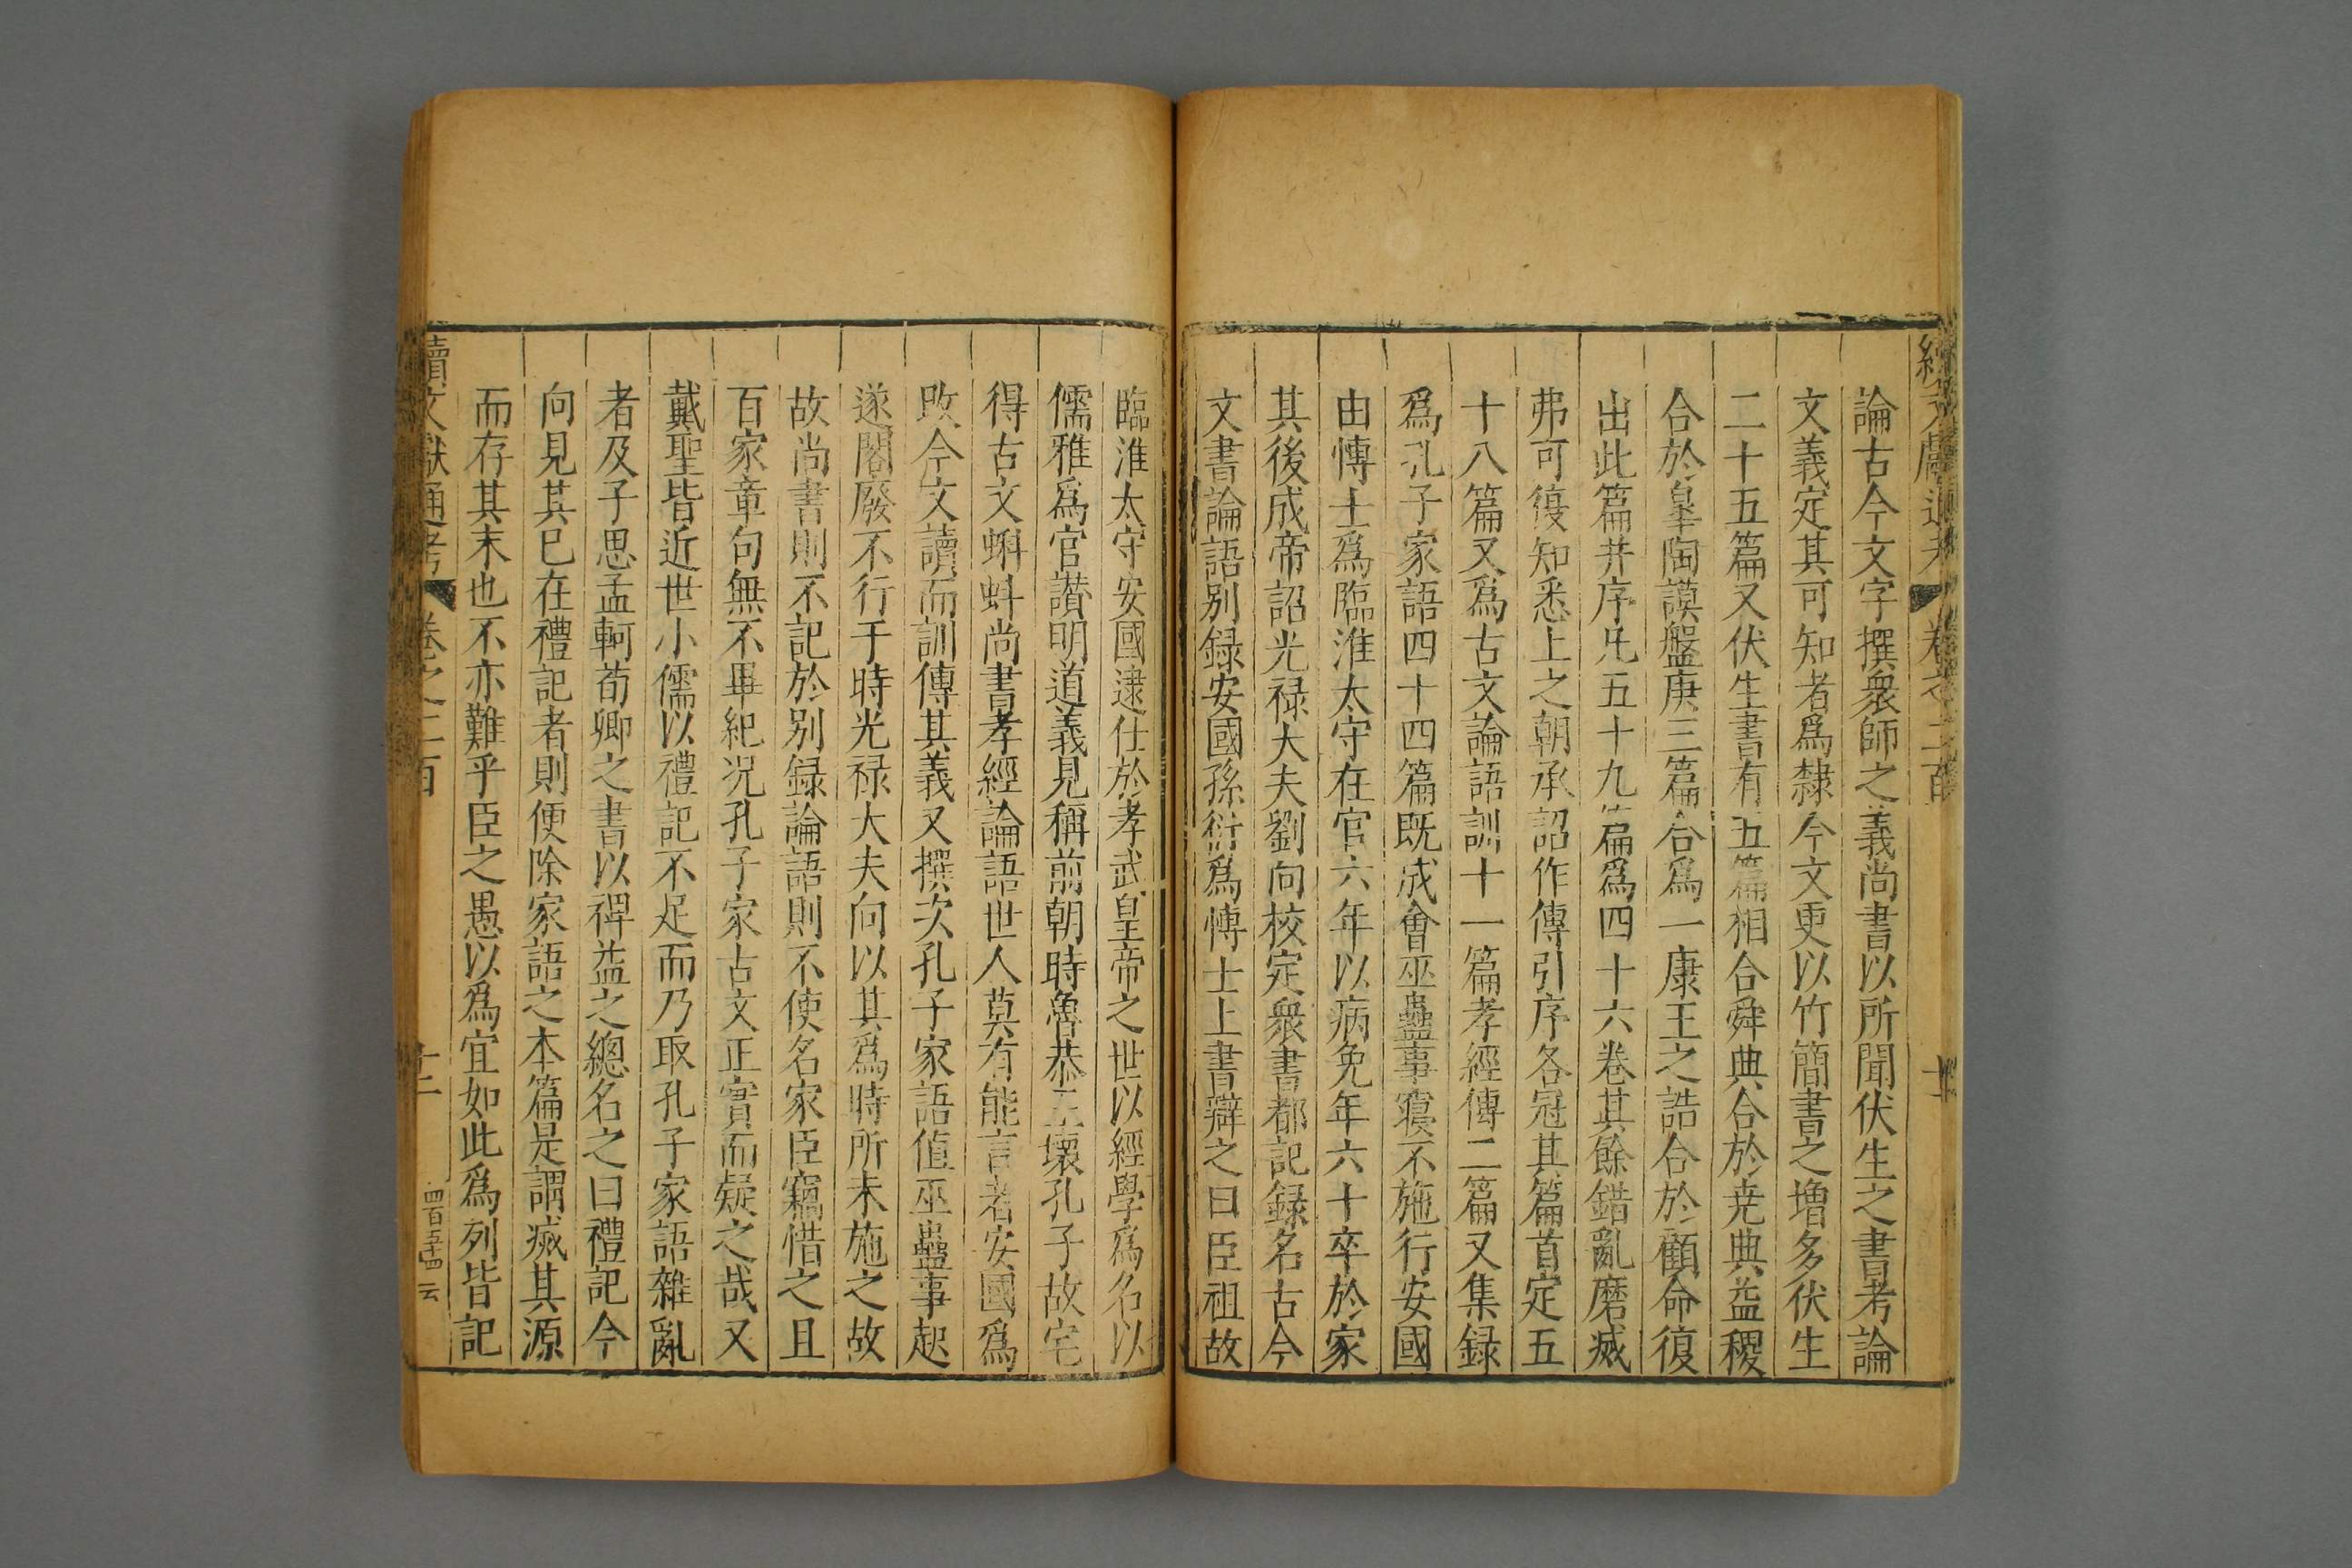 續文獻通考 卷之二百 十一
論古今文字撰衆師之義尚書以所聞伏生之書考論
文義定其可知者爲隸今文更以竹簡書之増多伏生
二十五篇又伏生書有五篇相合舜典合於尭典益稷
合於皋陶謨盤庚三篇合爲一康王之誥合於顧命復
出此篇并序凡五十九篇爲四十六卷其餘錯亂磨滅
弗可復知悉上之朝承詔作傳引序各冠其篇首定五
十八篇又爲古文論語訓十一篇孝經傳二篇又集録
爲孔子家語四十四篇既成會巫蠱事寝不施行安國
由愽士爲臨淮太守在官六年以病免年六十卒於家
其後成帝詔光禄大夫劉向校定衆書都記録名古今
文書論語别録安國孫衍爲愽士上書辯之曰臣祖故
臨淮太守安國逮仕於孝武皇帝之世以經學爲名以
儒雅爲官讃明道義見稱前朝時魯恭王壞孔子故宅
得古文蝌蚪尚書孝經論語世人莫有能言者安國爲
攺今文讀而訓傳其義又撰次孔子家語值巫蠱事起
遂閣廢不行于時光禄大夫向以其爲時所未施之故
故尚書則不記於别録論語則不使名家臣竊惜之且
百家章句無不畢紀况孔子家古文正實而疑之哉又
戴聖皆近世小儒以禮記不足而乃取孔子家語雜亂
者及子思孟軻荀卿之書以裨益之總名之曰禮記今
向見其已在禮記者則便除家語之本篇是謂滅其源
而存其末也不亦難乎臣之愚以爲宜如此爲列皆記
續文獻通考 卷之二百 十二 四百五十四 云